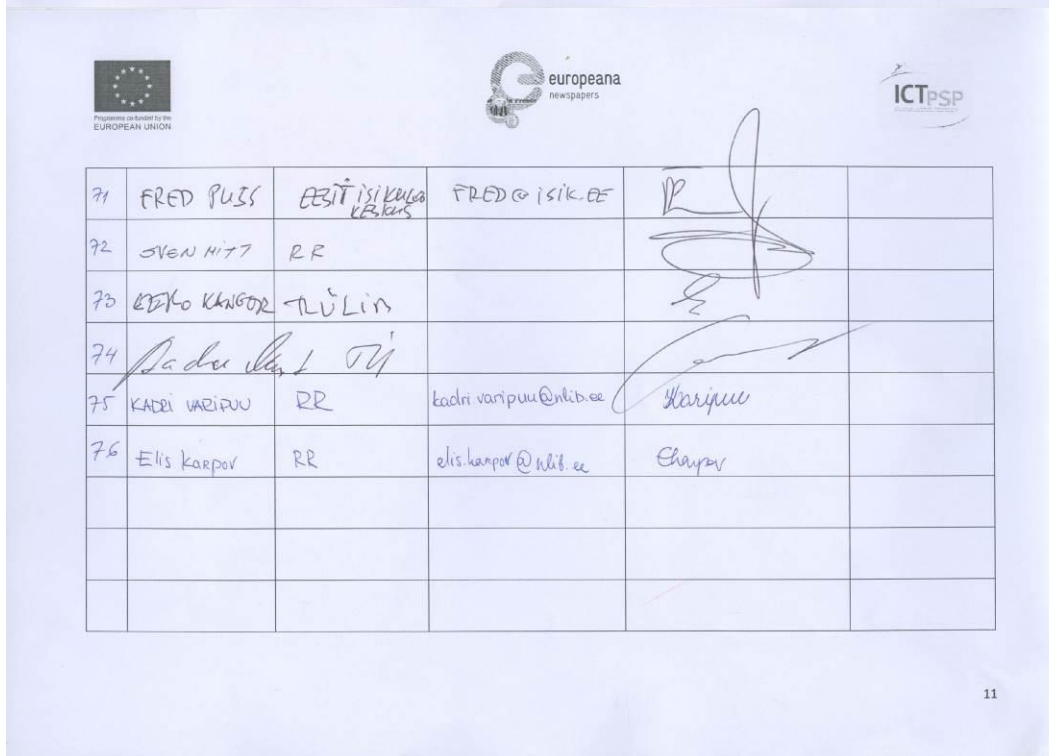 Programme co-funded by the
EUROPEAN UNION
europeana
newspapers
ICTPSP
71 FRED PUSS EESTI ISIKULOO KESKUS FRED@ISIK.EE
72 SVEN MITT RR
73 KANGOR
74 TÜ
75 KADRI VARIPUU RR kadri.varipuu@nlib.ee Varipuu
76 Elis Karpov RR elis.karpov@nlib.ee EKarpov
11